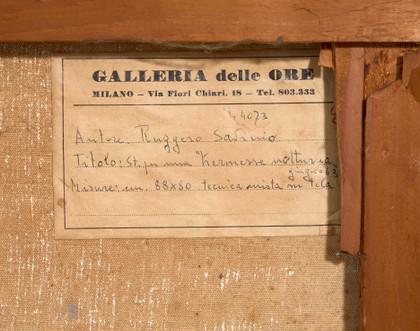 GALLERIA delle ORE
MILANO – Via Fiori Chiari, 18 – Tel. 803.333
4073
Autore: Ruggero Savinio
Titolo: St. per una "Kermesse notturna
giugno 63
Misure: cm. 88x80 tecnica mista su tela